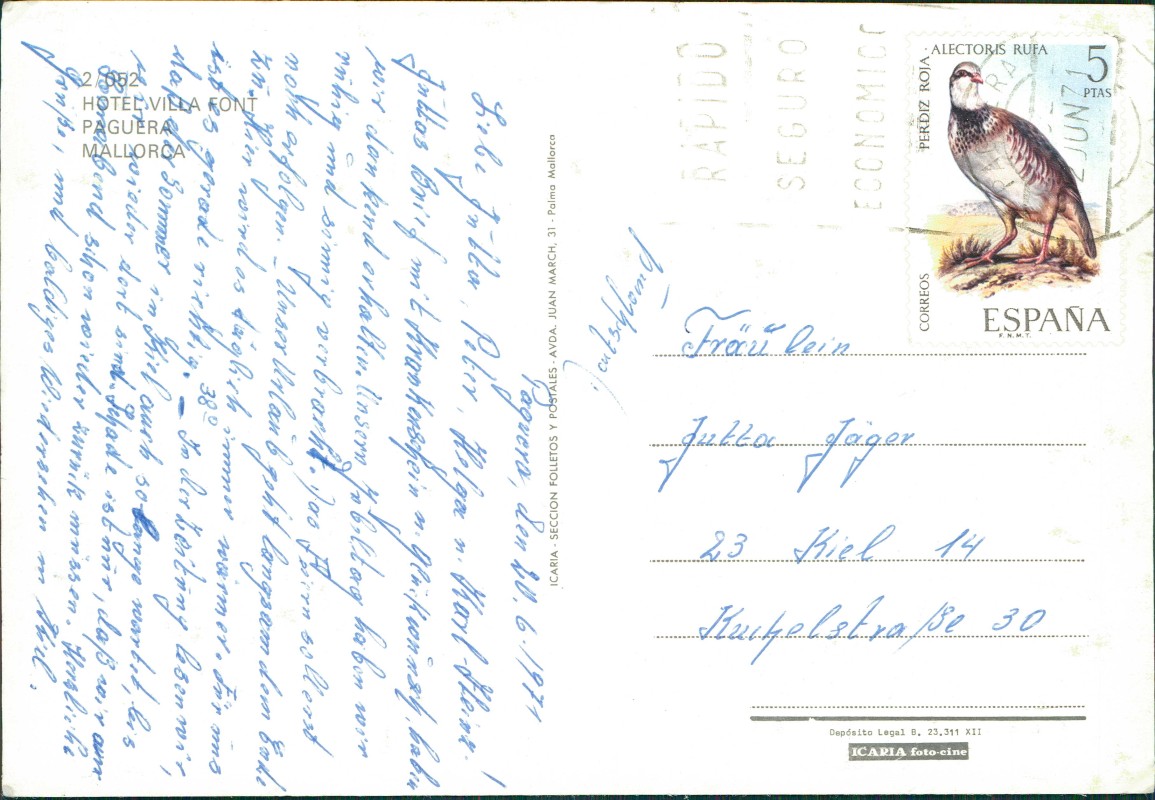 2/052
HOTEL VILLA FONT
PAGUERA
MALLORCA
Paguera, den 20.6.1971
Liebe Jutta, Peter, Helga u. Karl-Heinz!
Juttas Brief mit Krankenschein u. Glückwünsch. haben
wir dankend erhalten. Unsern haben wir
ruhig und sinnig verbracht. Das Feiern sollen wir
noch erfolgen. – Unser Urlaub geht langsam dem Ende
hin. Hier wird es täglich immer wärmer. Für uns
ist es gerade richtig. 38° – In der Zeitung lesen wir,
daß der Sommer in Kiel auch so lange wartet, bis
wir wieder dort sind. Schade ist nur, daß wir am
schon wieder zurück müssen. Herzliche
Grüße, und baldiges Wiedersehen in Kiel.
ICARIA - SECCION FOLLETOS Y POSTALES - AVDA. JUAN MARCH, 31 - Palma Mallorca
Deutschland
RAPIDO
SEGURO
ECONOMICO
2 JUN 71
ALECTORIS RUFA
PERDIZ ROJA
5
PTAS
CORREOS
ESPAÑA
F.N.M.T.
Fräulein
Jutta Jäger
23 Kiel 14
straße 30
Depósito Legal B. 23.311 XII
ICARIA foto-cine